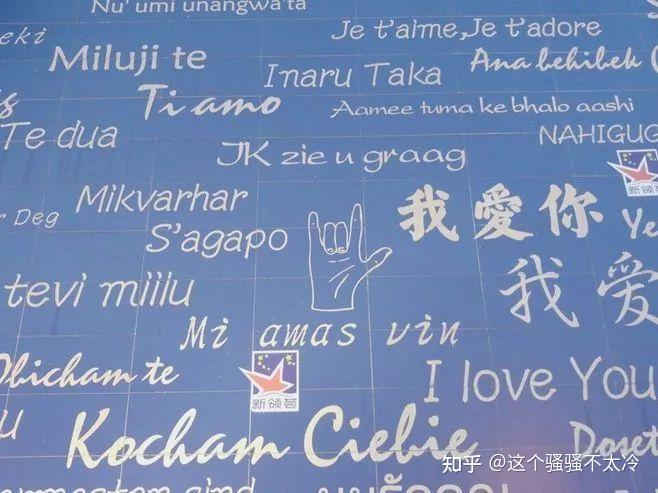 Nu' umi unangwa'ta
Je t'aime,Je t'adore
Miluji te
Ana behibek
Inaru Taka
Ti amo
Aamee tuma ke bhalo aashi
Te dua
NAHIGUG
JK zie u graag
新领荟
Mikvarhar
我愛你
Deg
S'agapo
tevi miilu
我愛
Mi amas vin
Obicham te
新领荟
I love You
Kocham Ciebie
知乎 @这个骚骚不太冷